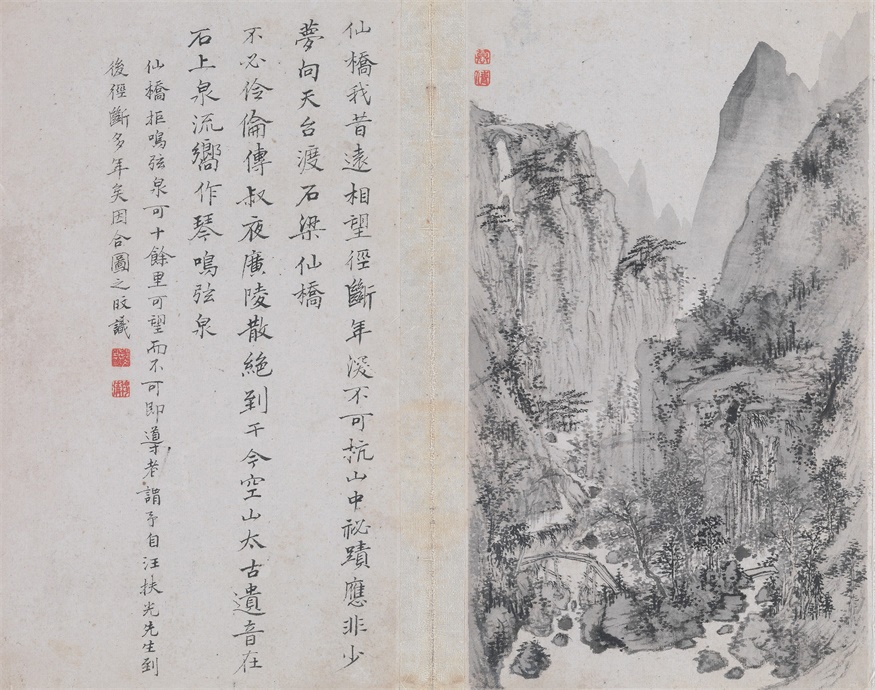 仙橋我昔遠相望徑斷年深不可杭山中祕蹟應非少
夢向天台渡石梁仙橋
不必伶倫傳叔夜廣陵散絕到于今空山太古遺音在
石上泉流嚮作琴鳴弦泉
仙橋拒鳴弦泉可十餘里可望而不可即導老謂予自汪扶光先生到
後徑斷多年矣因合圖之旼識